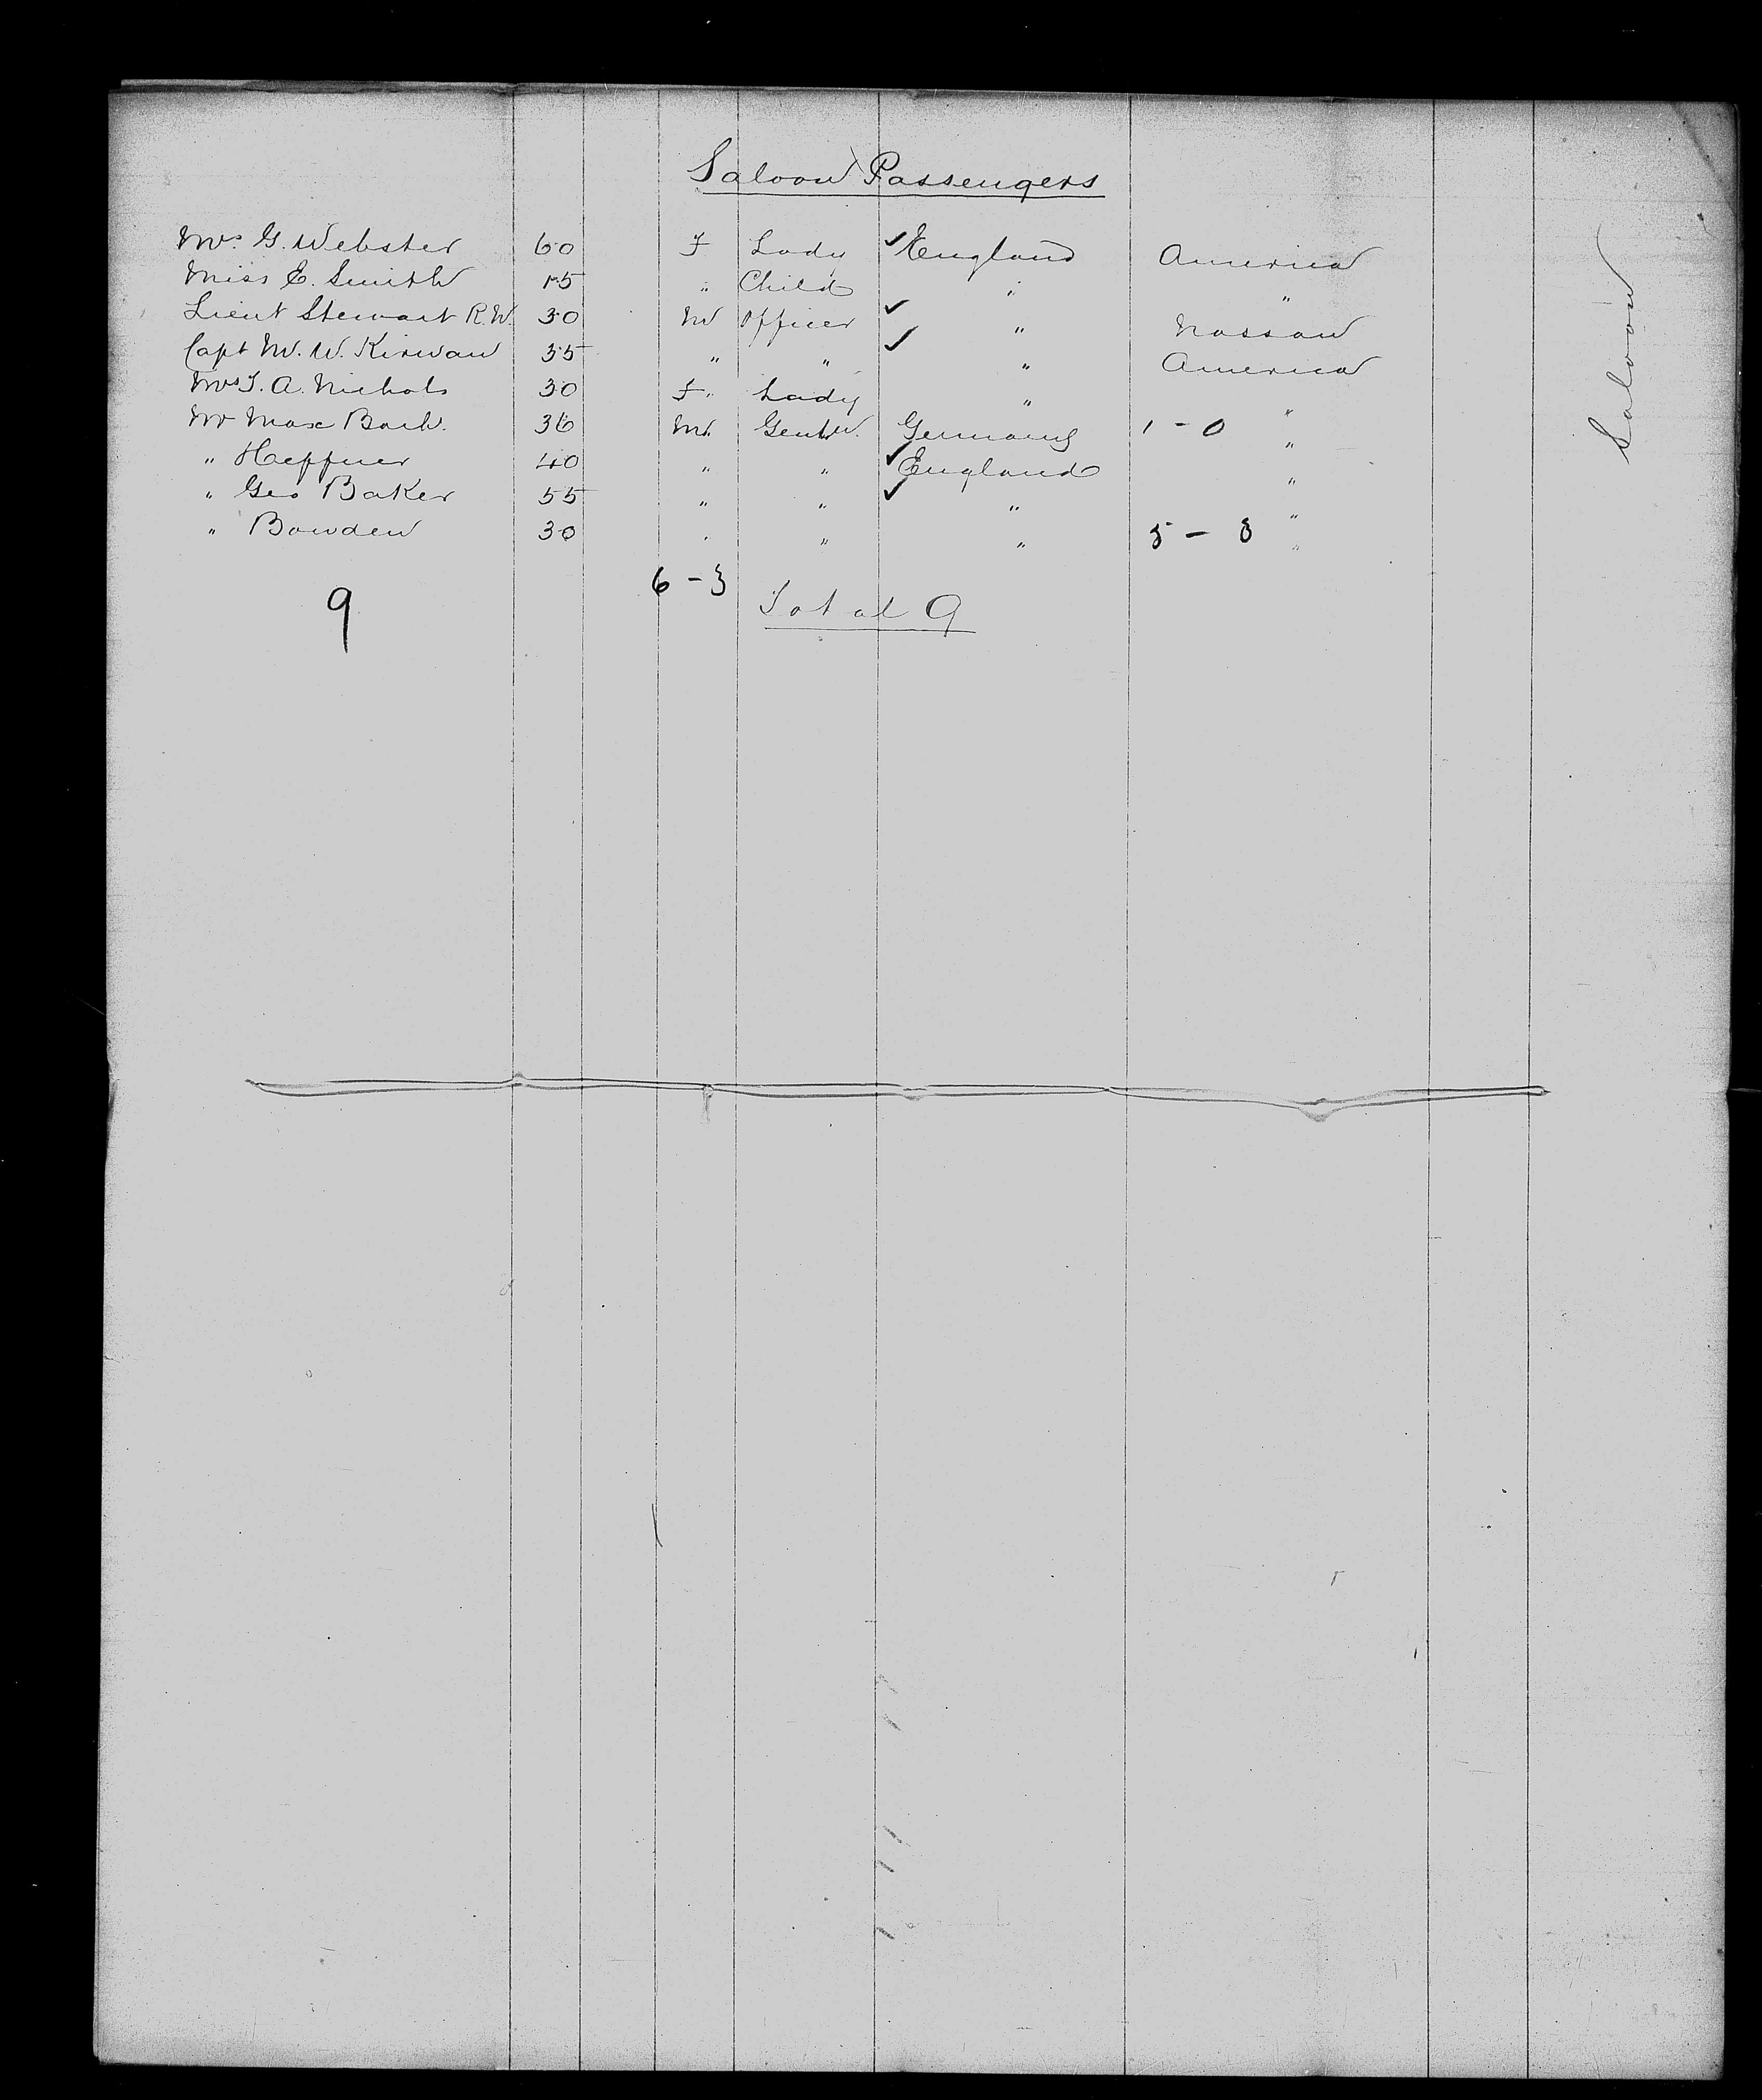 Saloon Passengers
Mrs. G. Webster 60 F Lady ✓ England America
Miss E. Smith 15 " Child " "
Lieut Stewart R.N. 30 M Officer ✓ " Nassau
Capt M. W. Kirwan 35 " " ✓ " America
Mrs J. A. Nichols 30 F. Lady " "
Mr Max 36 M. Gentn. Germany 1 - 0 "
" Heffner 40 " " ✓ England "
" Geo Baker 55 " " ✓ " "
" Bowden 30 " " " 5 - 3 "
6 - 3
9
Total 9
Saloon